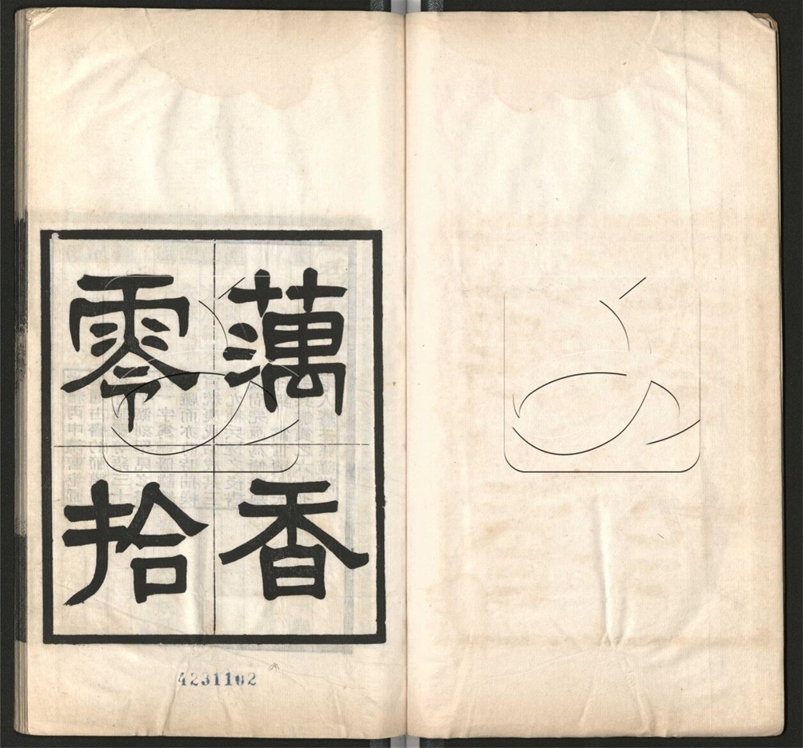 蕅香
零拾
4231102